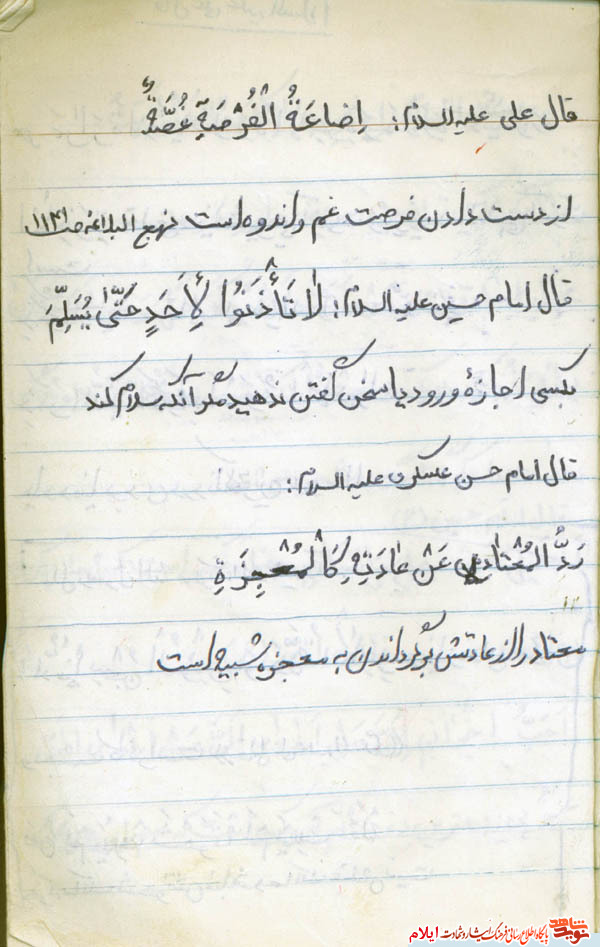 قال علی علیه السلام: اِضاعَةُ الْفُرْصَةِ غُصَّةٌ
از دست دادن فرصت غم و اندوه است نهج البلاغه ص ۱۱۴۱
قال امام حسین علیه السلام: لا تَأْذَنُوا لِأَحَدٍ حَتّیٰ یُسَلِّمَ
بکسی اجازهٔ ورود یا سخن گفتن ندهید مگر آنکه سلام کند
قال امام حسن عسکری علیه السلام:
رَدُّ الْمُعْتادِ عَنْ عادَتِهِ کَالْمُعْجِزَةِ
معتاد را از عادتش برگرداندن به معجزه شبیه است
نوید شاهد پایگاه اطلاع رسانی فرهنگ ایثار و شهادت ایلام